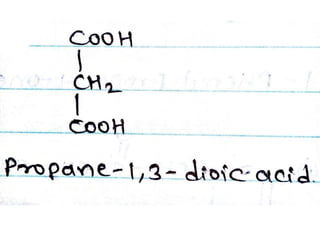 COOH
|
CH2
|
COOH
Propane-1,3-dioic-acid.